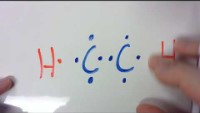 H· ·C· ·C· H